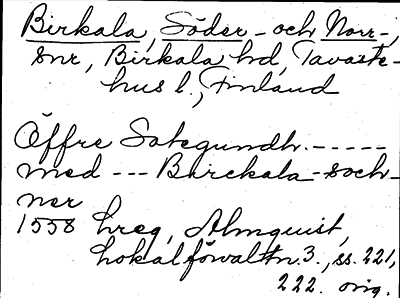 Birkala, Söder- och Norr-,
snr, Birkala hd, Tavaste-
hus l., Finland
Öffre Sategundh. - - - - -
med - - - Birckala-soch-
ner
1558 hreg, Almquist,
lokalförvaltn. 3., ss. 221,
222. orig.